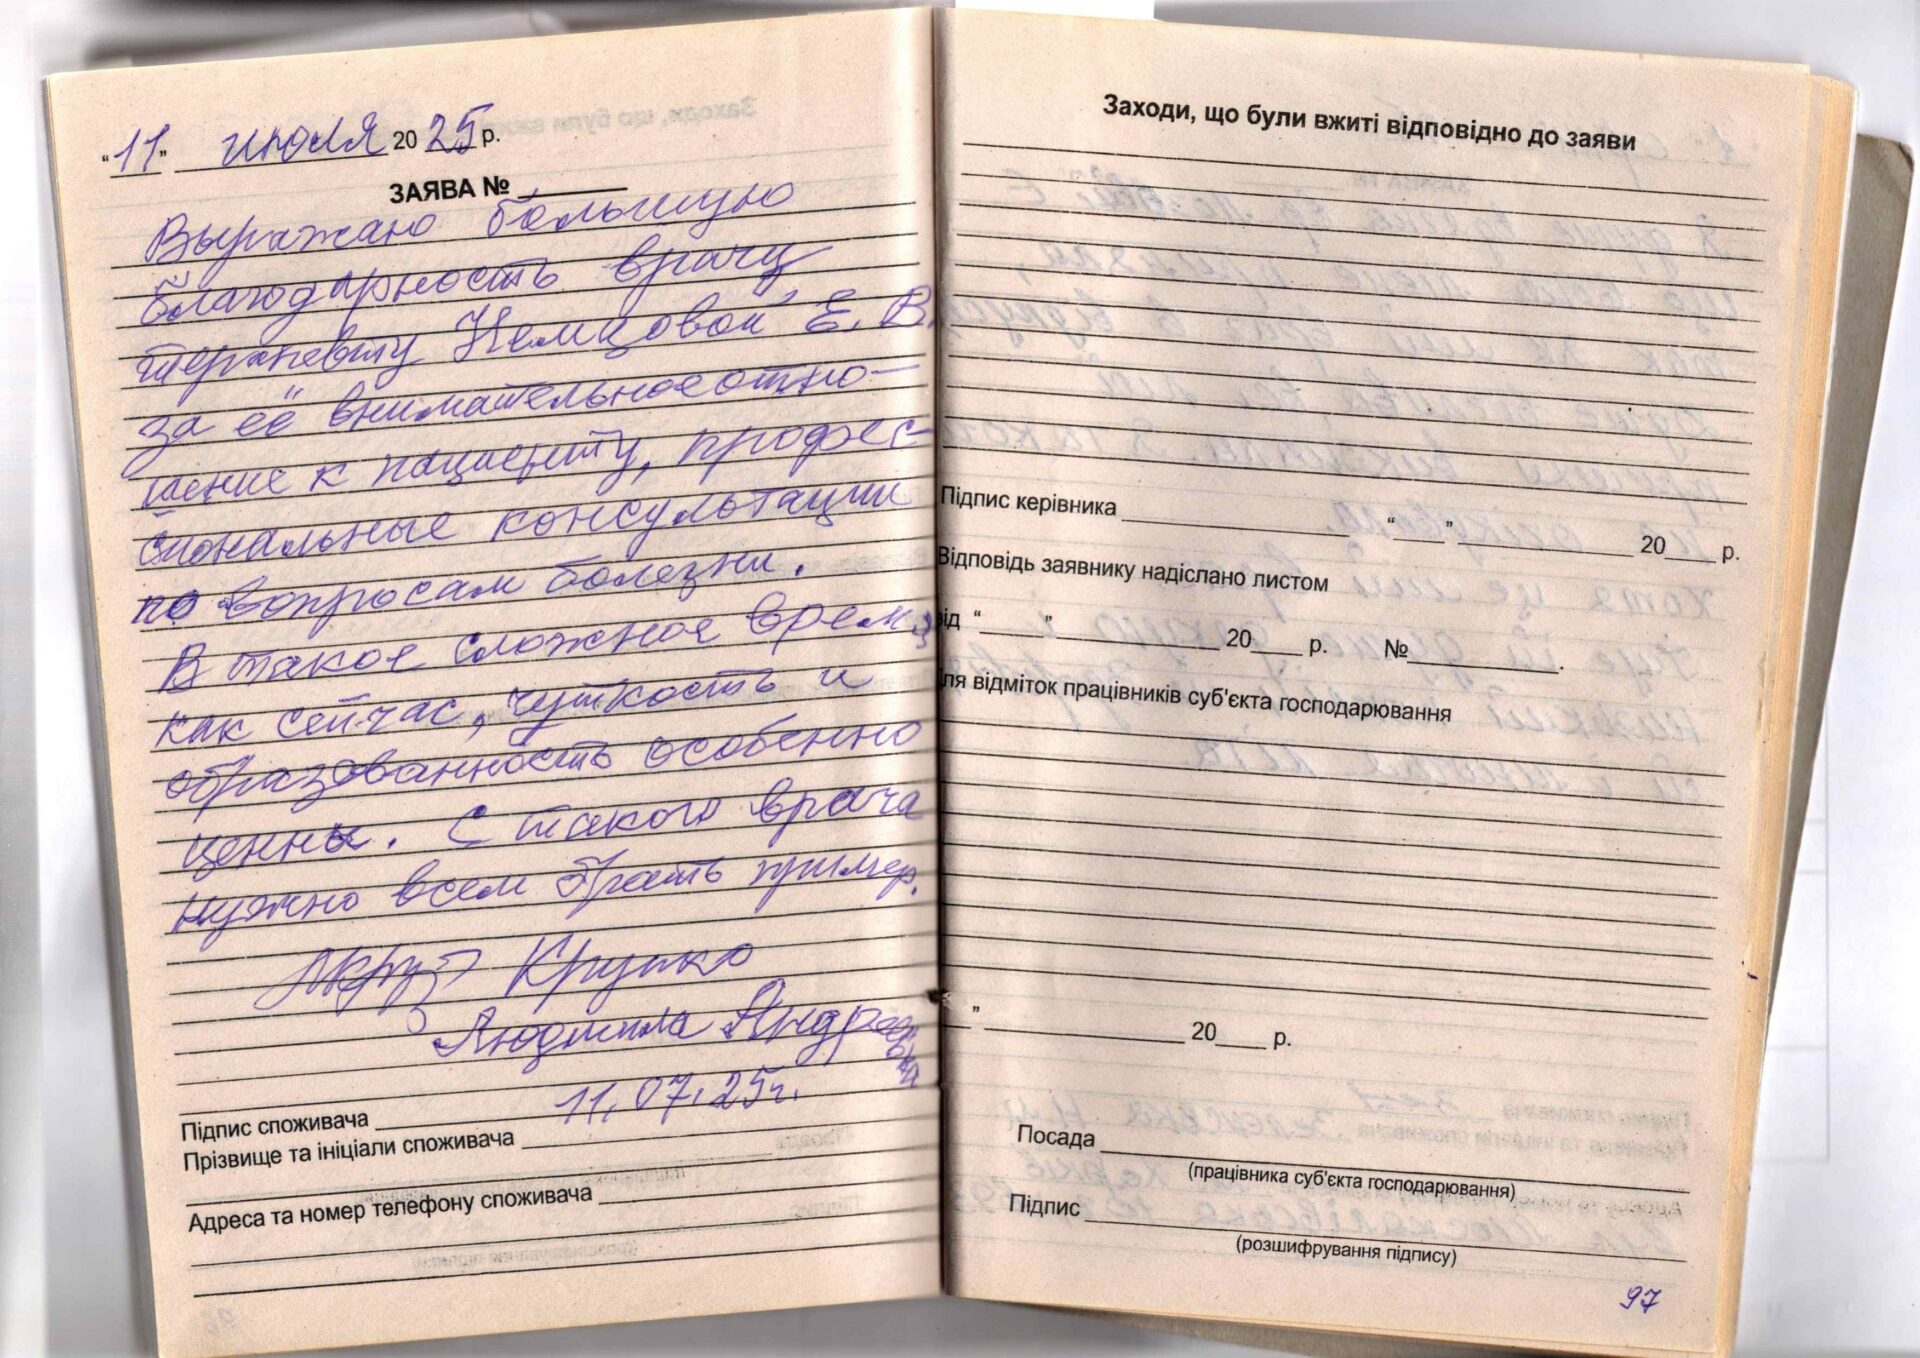 "11" июля 2025 р.
ЗАЯВА № ______
Выражаю большую
благодарность врачу
терапевту Немцовой Е. В.
за её внимательное отно-
шение к пациенту, профес-
сиональные консультации
по вопросам болезни.
В такое сложное время,
как сейчас, чуткость и
образованность особенно
ценны. С такого врача
нужно всем брать пример.
Крупко
Людмила Андреевна
11.07.25г.
Підпис споживача
Прізвище та ініціали споживача
Адреса та номер телефону споживача
Заходи, що були вжиті відповідно до заяви
Підпис керівника ______ "___" ______ 20___ р.
Відповідь заявнику надіслано листом
від "____" ______ 20___ р. №______.
Для відміток працівників суб'єкта господарювання
" ______ 20___ р.
Посада
(працівника суб'єкта господарювання)
Підпис
(розшифрування підпису)
97